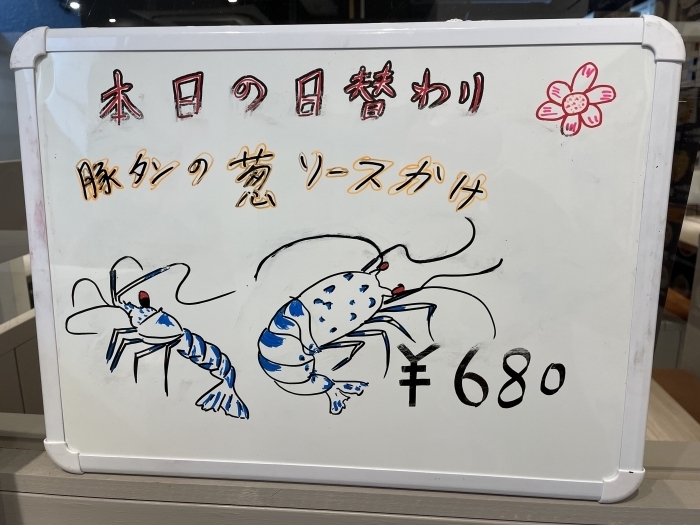 本日の日替わり
豚タンの葱ソースかけ
¥680